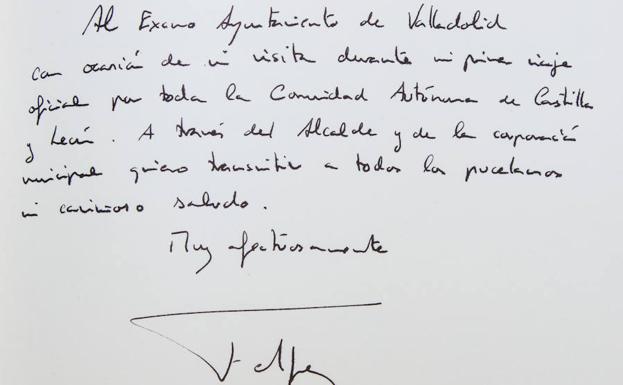 Al Excmo Ayuntamiento de Valladolid
con ocasión de mi visita durante mi primer viaje
oficial por toda la Comunidad Autónoma de Castilla
y León. A través del Alcalde y de la corporación
municipal quiero transmitir a todos los pucelanos
mi cariñoso saludo.
Muy afectuosamente